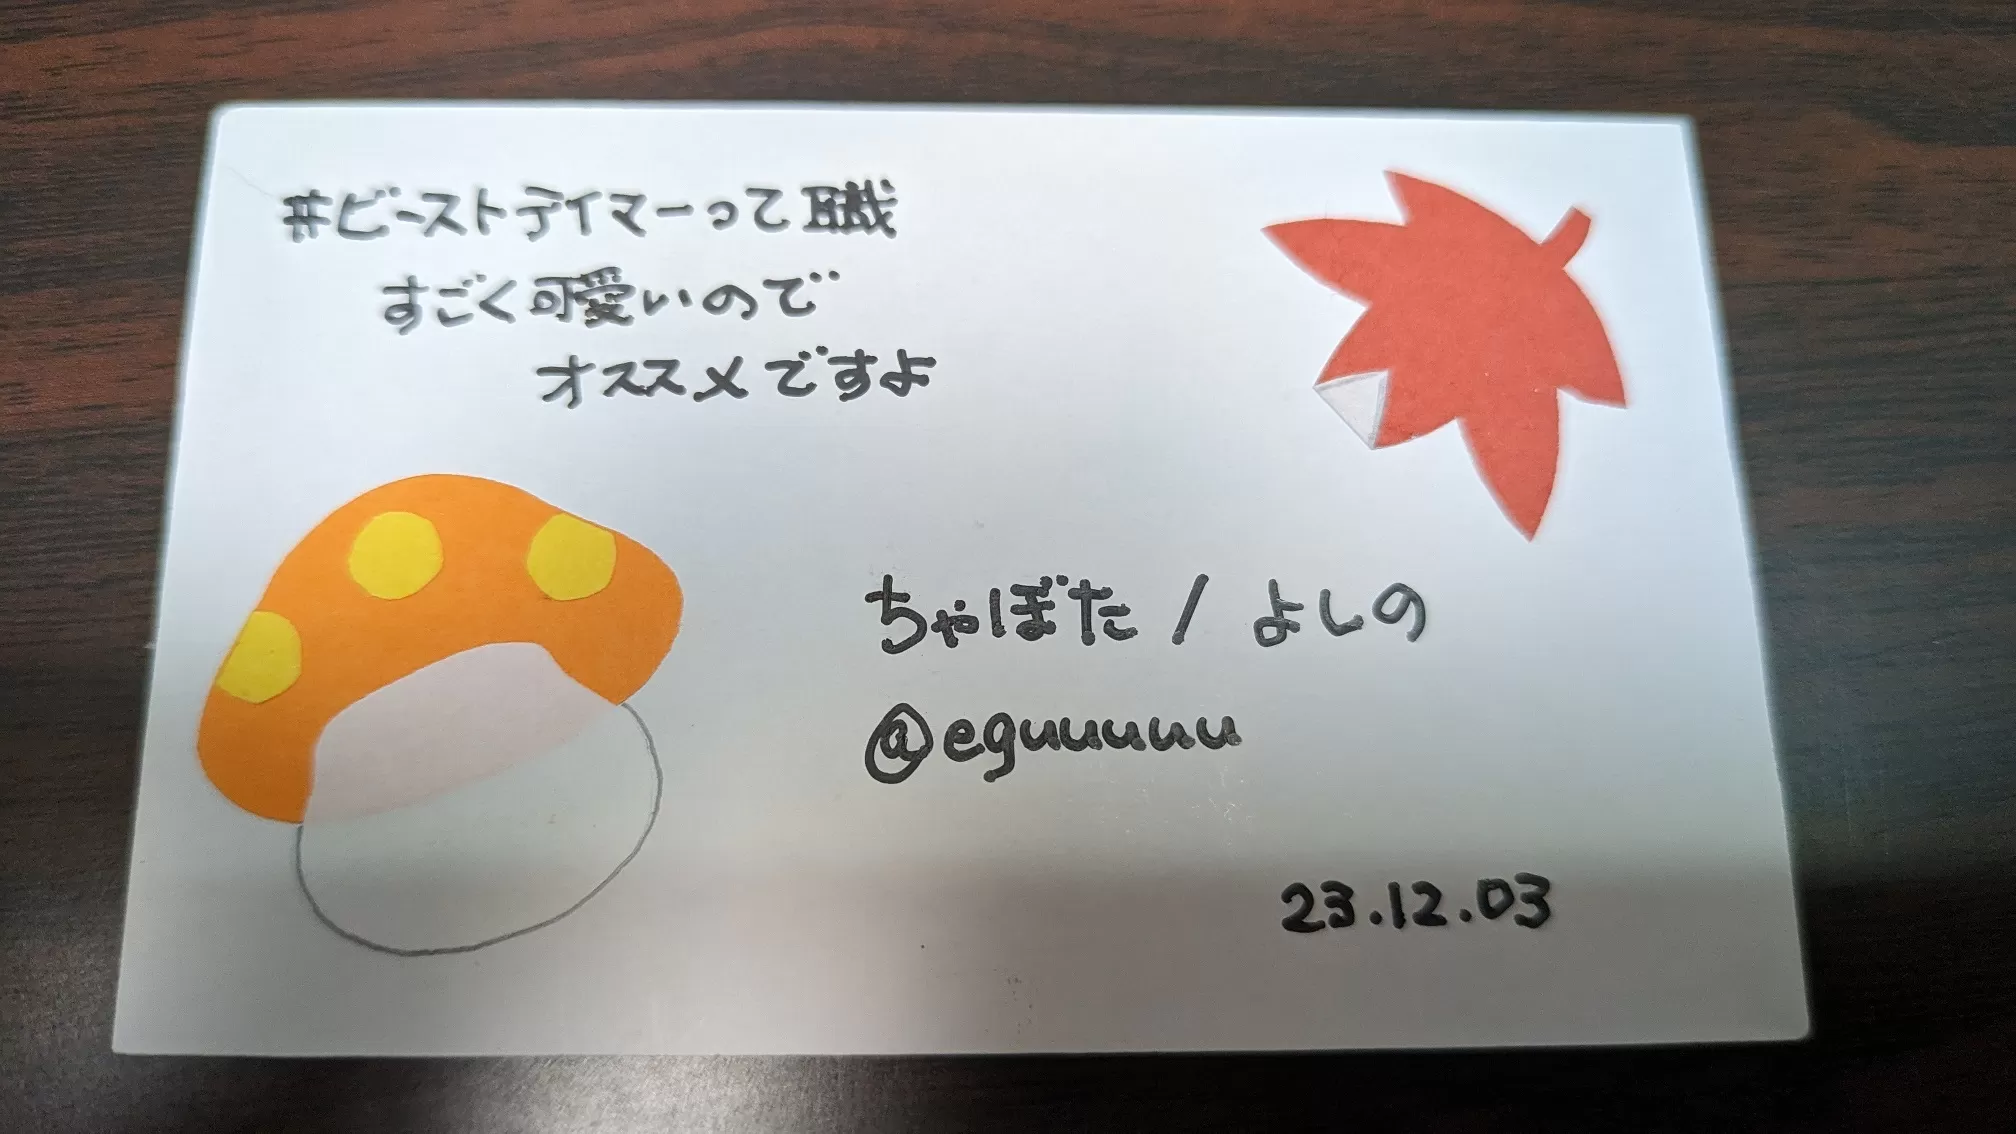 #ビーストテイマーって職
すごく可愛いので
オススメですよ
ちゃぼた / よしの
@eguuuuu
23.12.03